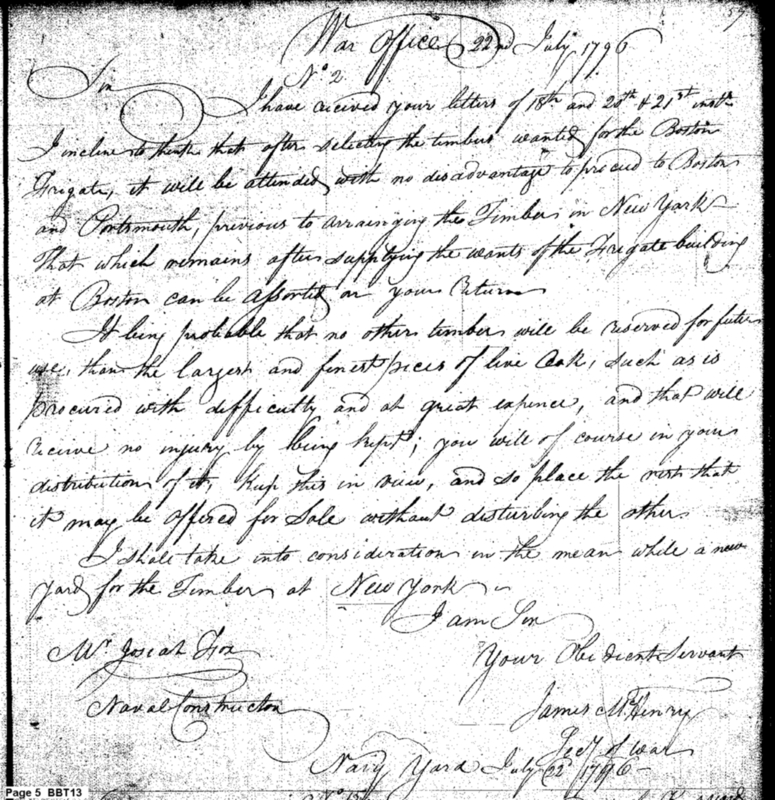 57
War Office 22nd July 1796
No 2
Sir
I have received your letters of 18th and 20th & 21st inst.
I incline to think that after selecting the timbers wanted for the Boston
Frigate, it will be attended with no disadvantage to proceed to Boston
and Portsmouth, previous to arrainging the Timber in New York
That which remains after supplying the wants of the Frigate building
at Boston can be assorted on your Return
It being probable that no other timber will be reserved for future
use, than the largest and finest pieces of live Oak, such as is
procured with difficulty and at great expence, and that will
receive no injury by being kept; you will of course in your
distribution of it, keep this in view, and so place the rest that
it may be offered for Sale without disturbing the other.
I shall take into consideration in the mean while a new
yard for the Timber at New York
I am Sir
Mr Josiah Fox
Your Obedient Servant
Naval Constructor
James McHenry
Secy of war
Navy Yard July 22d 1796
Page 5 BBT13